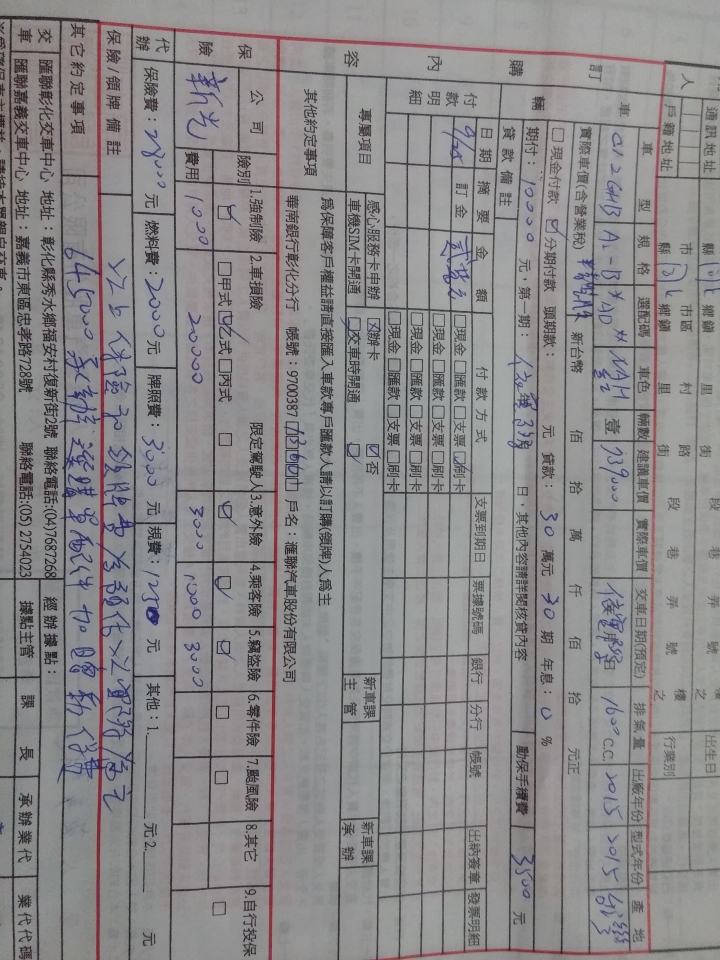 人 通訊地址 縣市 鄉鎮市區 村里 路街 段 巷 弄 號 樓之 出生日
戶籍地址 縣市 鄉鎮市區 村里 路街 段 巷 弄 號 樓之 行業別
訂購車輛內容
車型 規格 選配碼 車色 輛數 建議車價 實際車價 交車日期(預定) 排氣量 出廠年份 型式年份 產地
壹 739000 1600 C.C. 2015 2015 台灣
實際車價(含營業稅) 新台幣 佰 拾 萬 仟 佰 拾 元正
□現金付款 ☑分期付款 頭期款: 元 貸款: 30 萬元 30 期 年息: 0 %
期付: 10000 元,第一期: 日,其他內容請詳閱核貸內容 動保手續費 3500 元
貸款備註
付款明細
日期 摘要 金額 付款方式 支票到期日 票據號碼 銀行 分行 帳號 出納簽章 發票明細
9/25 訂金 □現金 □匯款 □支票 ☑刷卡
□現金 □匯款 □支票 □刷卡
□現金 □匯款 □支票 □刷卡
□現金 □匯款 □支票 □刷卡
專屬項目 感心服務卡申辦 ☑辦卡 ☑否 新車課主管 新車課承辦
車機SIM卡開通 □交車時開通
其他約定事項 為保障客戶權益請直接匯入車款專戶匯款人請以訂購(領牌)人為主
華南銀行彰化分行 帳號:9700387 戶名:滙聯汽車股份有限公司
保險
公司 險別 1.強制險 2.車損險 限定駕駛人 3.意外險 4.乘客險 5.竊盜險 6.零件險 7.颱風險 8.其它 9.自行投保
新光 ☑ □甲式 ☑乙式 □丙式 □ ☑ ☑ ☑ □ □ □
費用 1000 20000 3000 1000 3000
代辦 保險費: 28000 元 燃料費: 2000 元 牌照費: 3000 元 規費: 元 其他:1. 元 2. 元
保險/領牌備註 以上保險和領牌費為預估以實際為主
其它約定事項 645000
交車 匯聯彰化交車中心 地址:彰化縣秀水鄉福安村復新街2號 聯絡電話:(04)7687268 經辦據點:
匯聯嘉義交車中心 地址:嘉義市東區忠孝路728號 聯絡電話:(05) 2754023 據點主管 課長 承辦業代 業代代碼